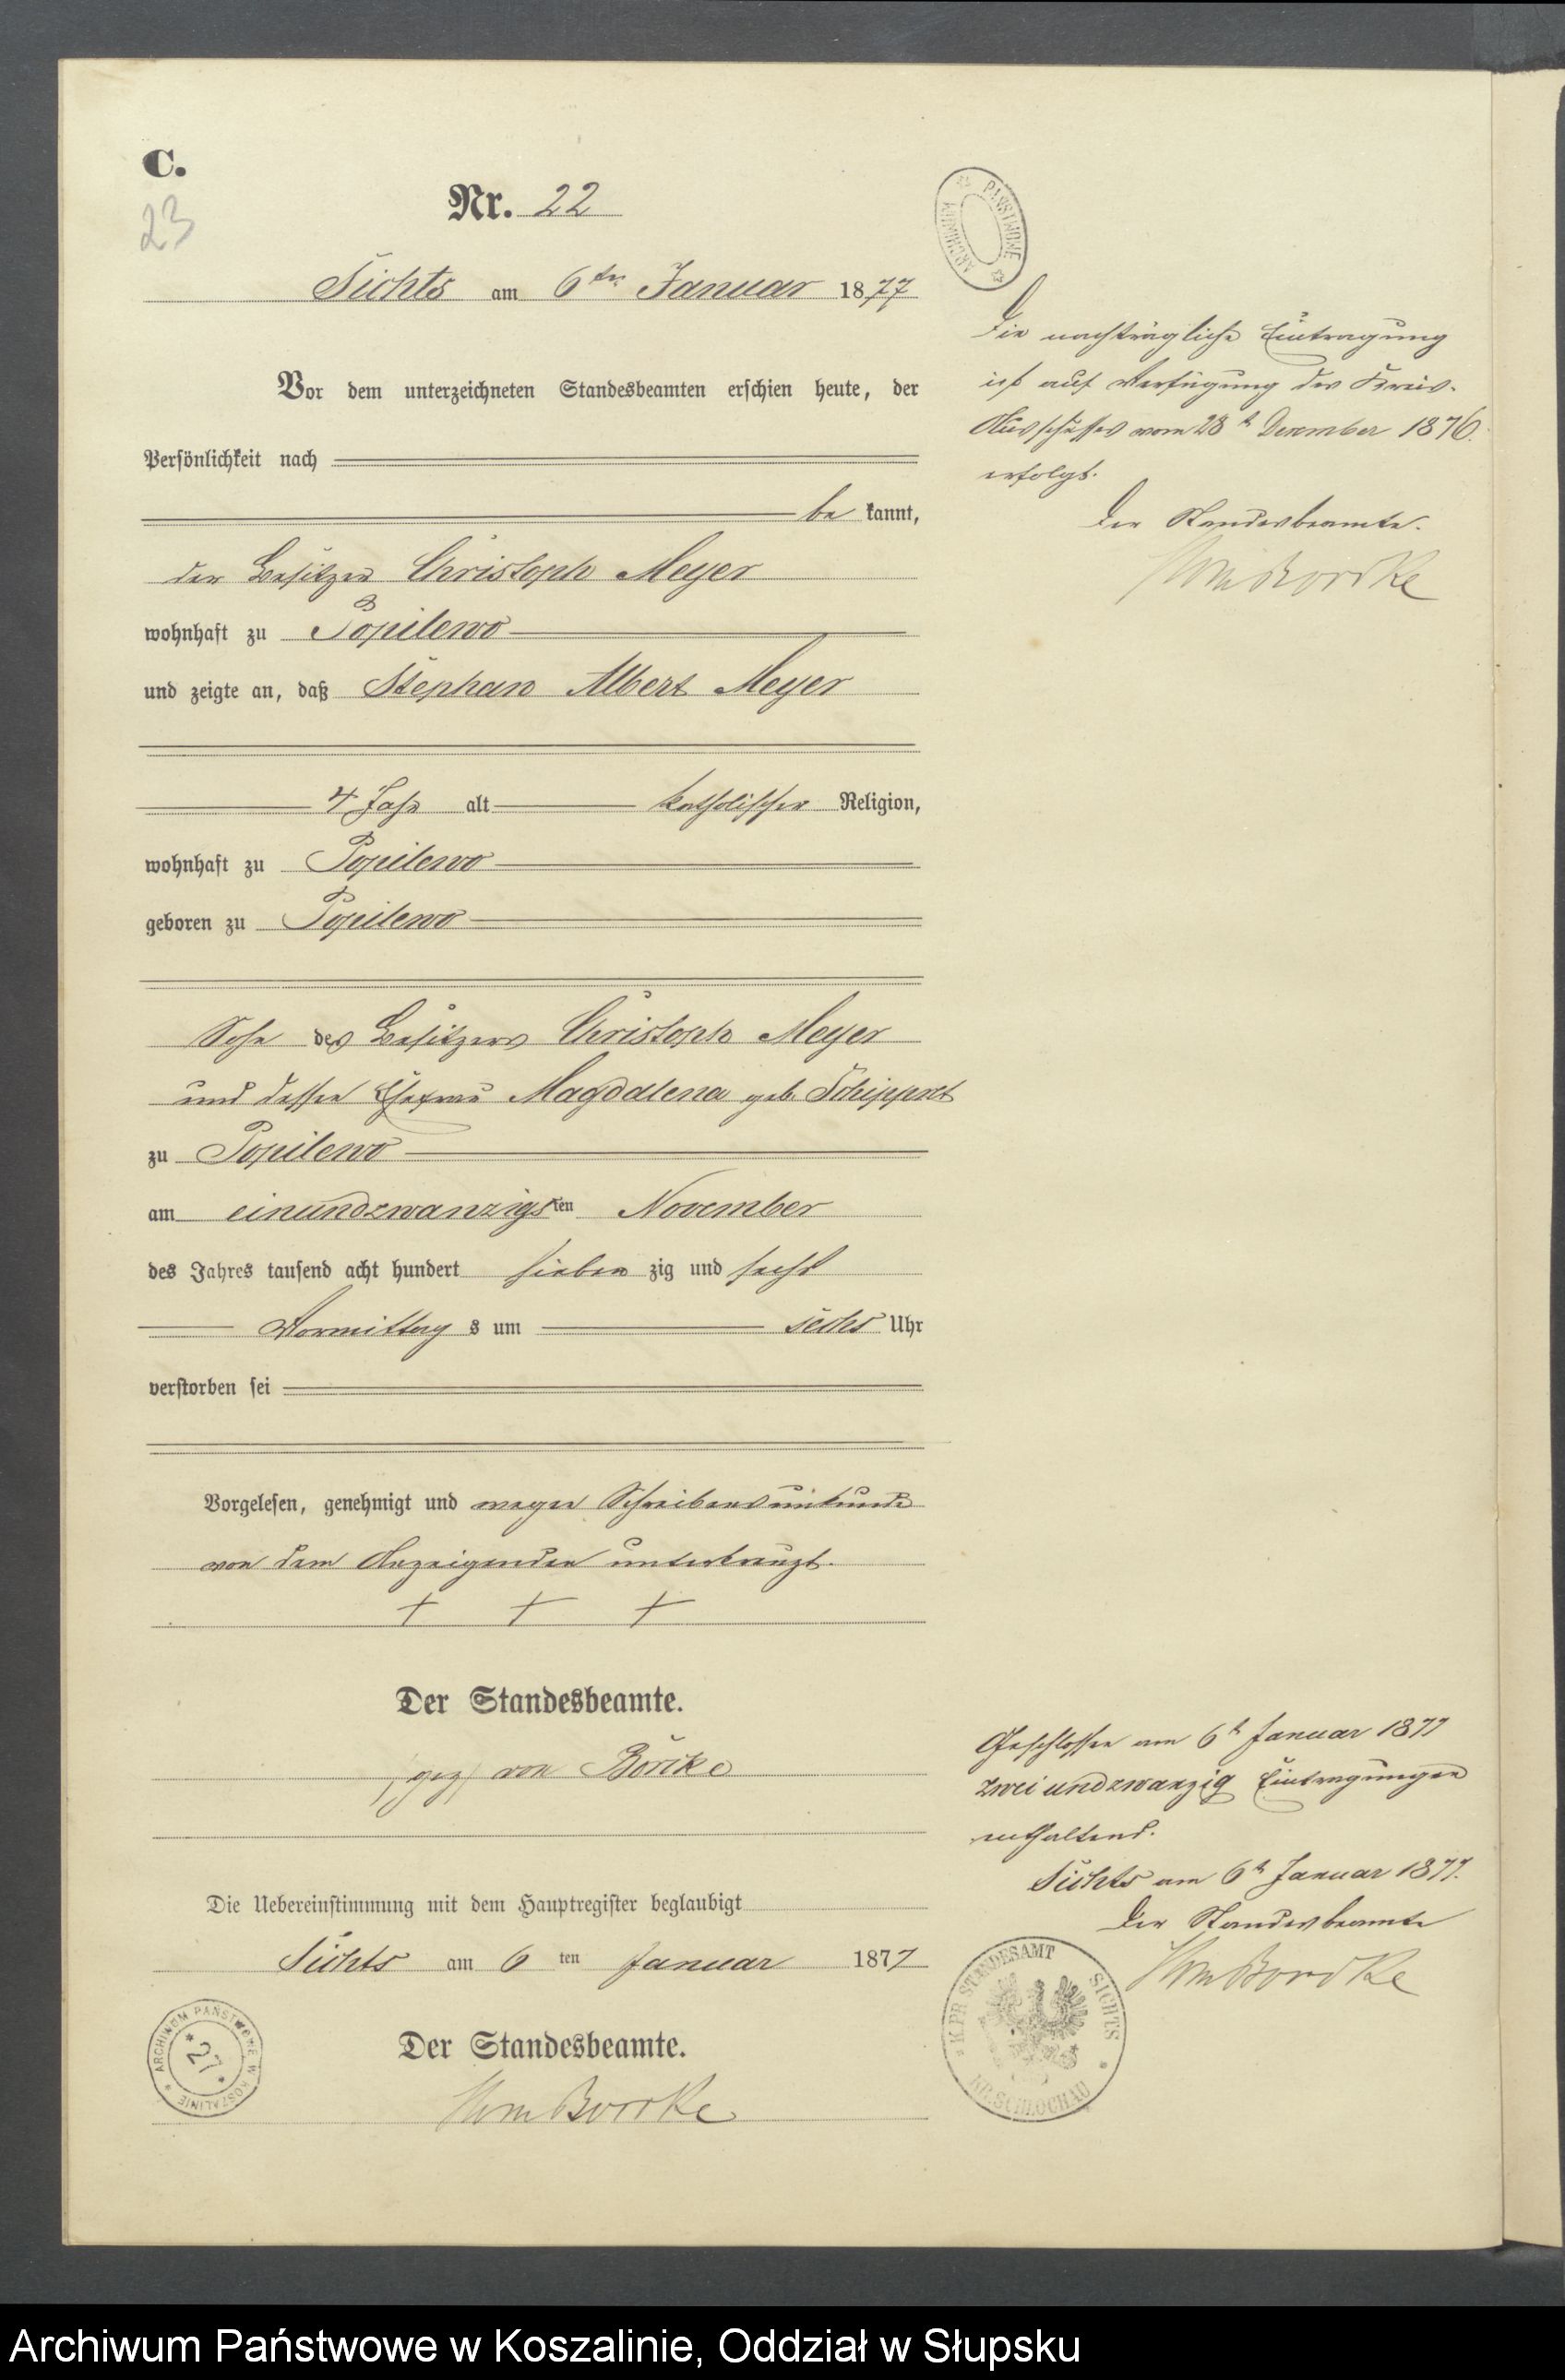 C.
23
Nr. 22
Sichts am 6ten Januar 1877
Vor dem unterzeichneten Standesbeamten erschien heute, der
Persönlichkeit nach
be kannt,
der Besitzer Christoph Meyer
wohnhaft zu Popilewo
und zeigte an, daß Stephan Albert Meyer
4 Jahr alt katholischer Religion,
wohnhaft zu Popilewo
geboren zu Popilewo
Sohn des Besitzers Christoph Meyer
und dessen Ehefrau Magdalena geb.
zu Popilewo
am einundzwanzigsten November
des Jahres tausend acht hundert sieben zig und sechs
Vormittag s um sechs Uhr
verstorben sei
Vorgelesen, genehmigt und wegen Schreibensunkunde
von dem Anzeigenden unterkreuzt.
+ + +
Der Standesbeamte.
(gez) von Borcke
Die Uebereinstimmung mit dem Hauptregister beglaubigt
Sichts am 6 ten Januar 1877
Der Standesbeamte.
von Borcke
ARCHIWUM PAŃSTWOWE W KOSZALINIE
27
ARCHIWUM PAŃSTWOWE
Die nachträgliche Eintragung
ist auf Verfügung des Kreis-
Ausschusses vom 28t Dezember 1876.
erfolgt.
Der Standesbeamte.
von Borcke
Geschlossen am 6t Januar 1877
zwei undzwanzig Eintragungen
enthaltend.
Sichts am 6t Januar 1877.
Der Standesbeamte
von Borcke
K. PR STANDESAMT SICHTS
KR. SCHLOCHAU
Archiwum Państwowe w Koszalinie, Oddział w Słupsku